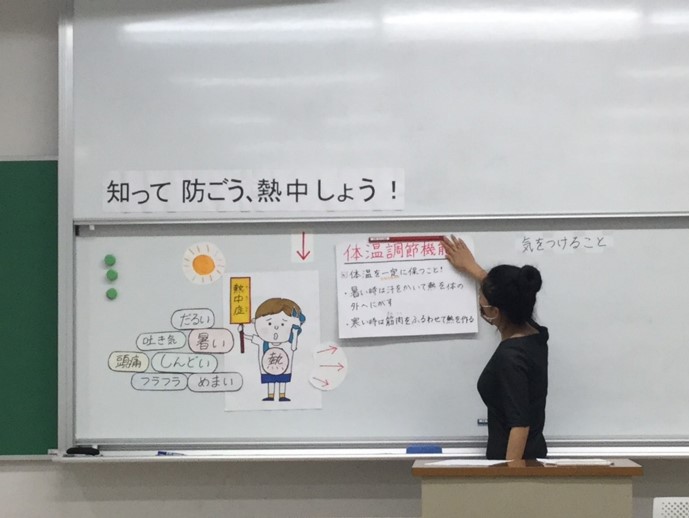 知って 防ごう、熱中しょう！
体温調節機能
※体温を一定に保つこと！
・暑い時は汗をかいて熱を体の
外へにがす
・寒い時は筋肉をふるわせて熱を作る
気をつけること
熱中症
熱
だるい
吐き気
暑い
頭痛
しんどい
フラフラ
めまい